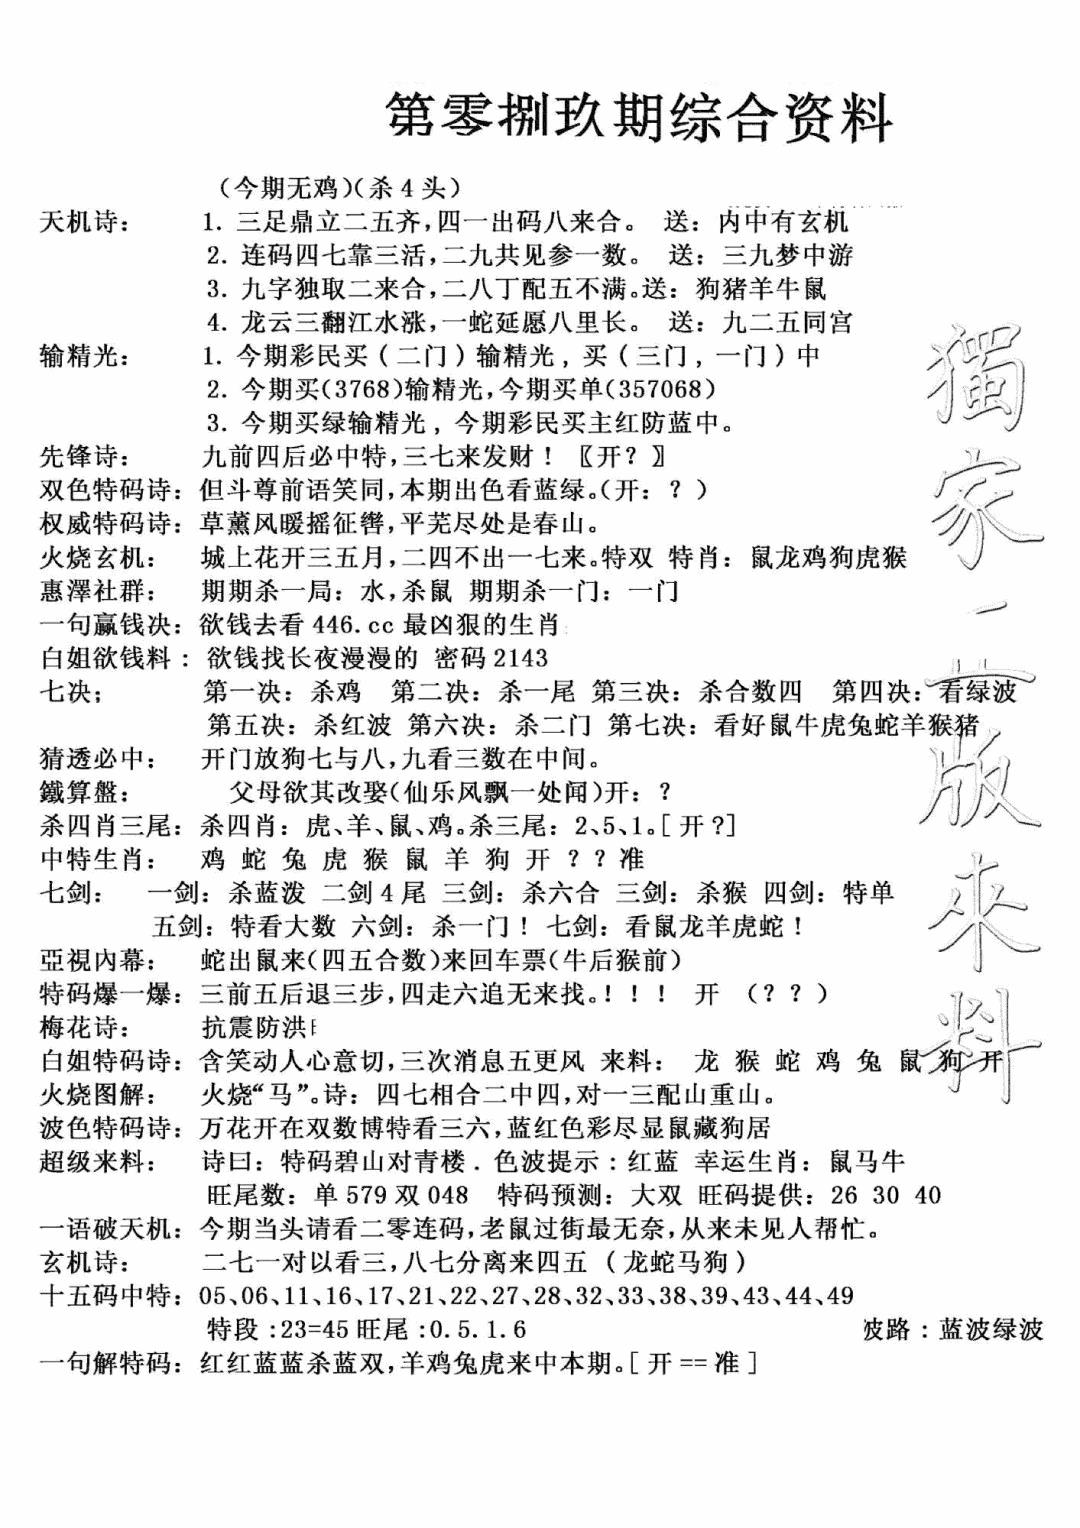 第零捌玖期综合资料
（今期无鸡）（杀4头）
天机诗： 1. 三足鼎立二五齐,四一出码八来合。 送：内中有玄机
2. 连码四七靠三活,二九共见参一数。 送：三九梦中游
3. 九字独取二来合,二八丁配五不满。送：狗猪羊牛鼠
4. 龙云三翻江水涨,一蛇延愿八里长。 送：九二五同宫
输精光： 1. 今期彩民买（二门）输精光，买（三门，一门）中
2. 今期买(3768)输精光,今期买单(357068)
3. 今期买绿输精光，今期彩民买主红防蓝中。
先锋诗： 九前四后必中特,三七来发财！〖开？〗
双色特码诗：但斗尊前语笑同,本期出色看蓝绿。（开：？）
权威特码诗：草薰风暖摇征辔,平芜尽处是春山。
火烧玄机： 城上花开三五月,二四不出一七来。特双 特肖：鼠龙鸡狗虎猴
惠澤社群： 期期杀一局：水,杀鼠 期期杀一门：一门
一句赢钱决：欲钱去看446.cc最凶狠的生肖
白姐欲钱料： 欲钱找长夜漫漫的 密码2143
七决； 第一决：杀鸡 第二决：杀一尾 第三决：杀合数四 第四决：看绿波
第五决：杀红波 第六决：杀二门 第七决：看好鼠牛虎兔蛇羊猴猪
猜透必中： 开门放狗七与八,九看三数在中间。
鐵算盤： 父母欲其改娶(仙乐风飘一处闻)开：？
杀四肖三尾：杀四肖：虎、羊、鼠、鸡。杀三尾：2、5、1。[开?]
中特生肖： 鸡 蛇 兔 虎 猴 鼠 羊 狗 开 ？？准
七剑： 一剑：杀蓝泼 二剑4尾 三剑：杀六合 三剑：杀猴 四剑：特单
五剑：特看大数 六剑：杀一门！ 七剑：看鼠龙羊虎蛇！
亞視內幕： 蛇出鼠来(四五合数)来回车票(牛后猴前)
特码爆一爆：三前五后退三步,四走六追无来找。！！！ 开 （？？）
梅花诗： 抗震防洪
白姐特码诗：含笑动人心意切,三次消息五更风 来料： 龙 猴 蛇 鸡 兔 鼠 狗 开
火烧图解： 火烧“马”。诗：四七相合二中四,对一三配山重山。
波色特码诗：万花开在双数博特看三六,蓝红色彩尽显鼠藏狗居
超级来料： 诗曰：特码碧山对青楼．色波提示：红蓝 幸运生肖：鼠马牛
旺尾数：单579双048 特码预测：大双 旺码提供：26 30 40
一语破天机：今期当头请看二零连码,老鼠过街最无奈,从来未见人帮忙。
玄机诗： 二七一对以看三,八七分离来四五（龙蛇马狗）
十五码中特：05、06、11、16、17、21、22、27、28、32、33、38、39、43、44、49
特段:23=45旺尾:0.5.1.6 波路：蓝波绿波
一句解特码：红红蓝蓝杀蓝双,羊鸡兔虎来中本期。[开==准]
獨家一世版來料